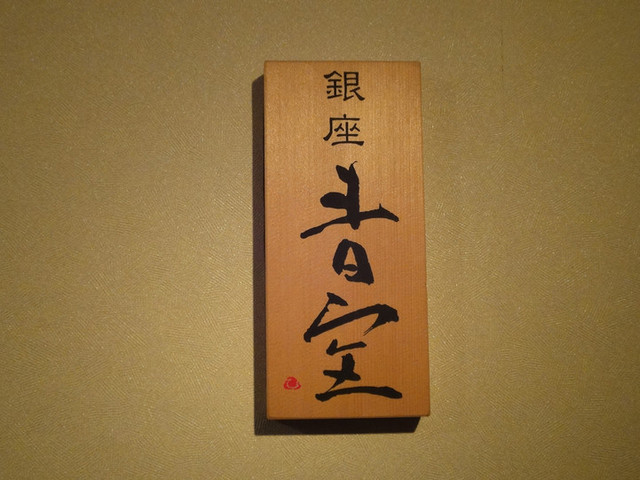 銀座
青空